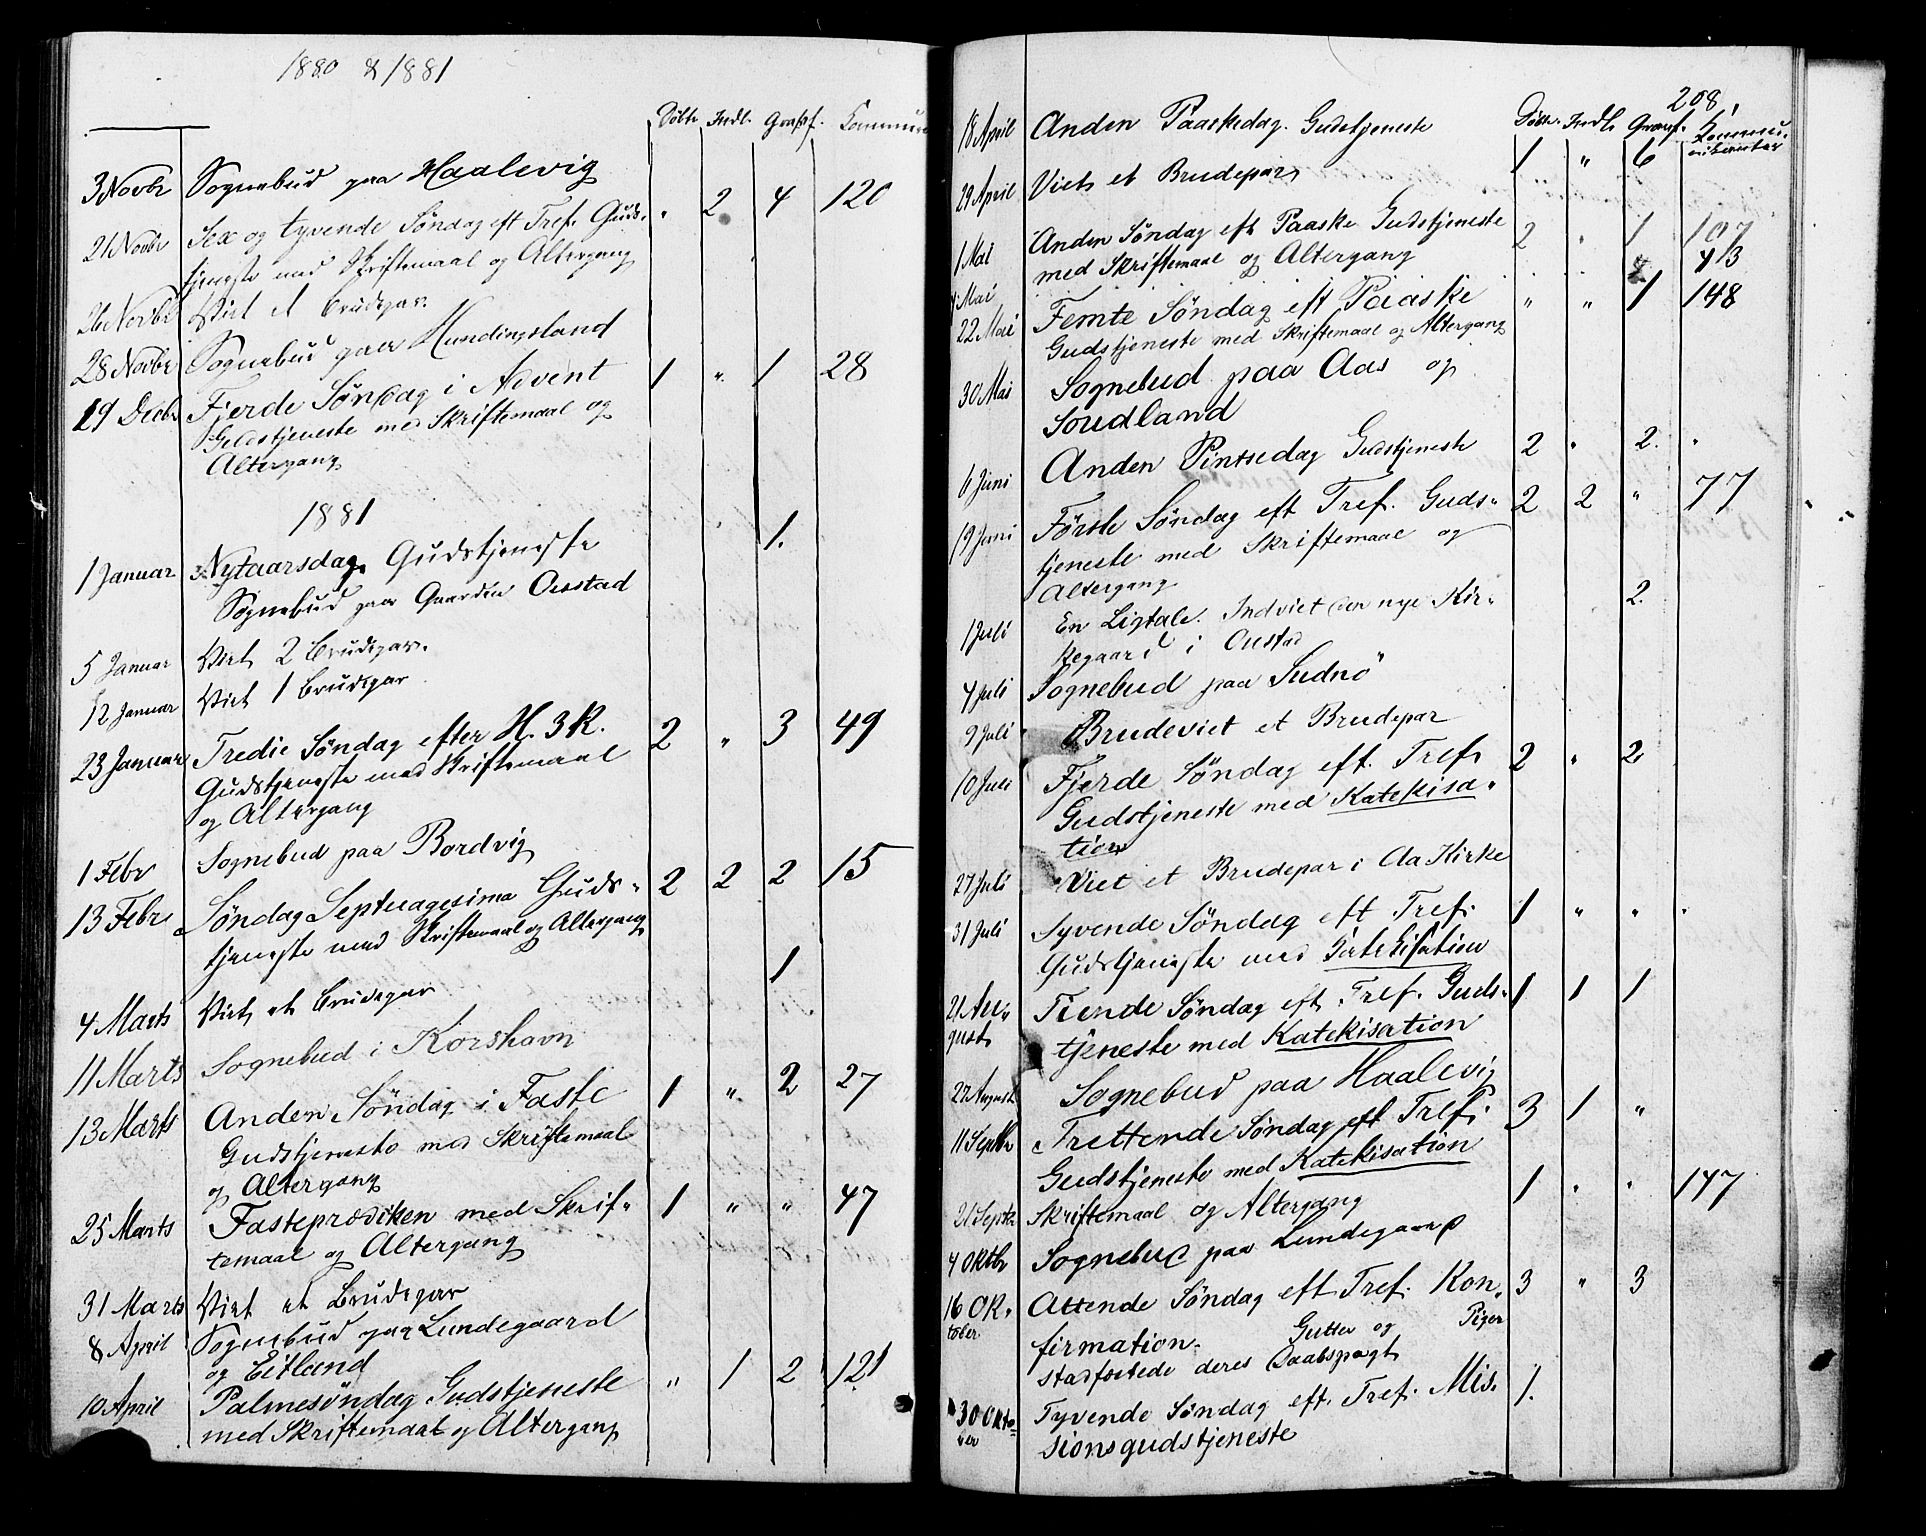 1880 & 1881
Døbte Indl. Graff. Kommuni
3 Novbr Sognebud paa Haalevig
21 Novbr Sex og tyvende Søndag eft Tref. Guds- " 2 4 120
tjeneste med Skriftemaal og Altergang
26 Novbr Viet et Brudepar.
28 Novbr Sognebud paa Hundingsland
19 Decbr Fjerde Søndag i Advent 1 " 1 28
Gudstjeneste med Skriftemaal og
Altergang
1881
1 Januar Nytaarsdag. Gudstjeneste 1.
Sognebud paa Gaarden
5 Januar Viet 2 Brudepar.
12 Januar Viet 1 Brudepar
23 Januar Tredie Søndag efter H. 3 K. 2 " 3 49
Gudstjeneste med Skriftemaal
og Altergang
1 Febr Sognebud paa Bordvig
13 Febr Søndag Septuagesima Guds- 2 2 2 15
tjeneste med Skriftemaal og Altergang
4 Marts Viet et Brudepar 1
11 Marts Sognebud i Korshavn
13 Marts Anden Søndag i Faste 1 " 2 27
Gudstjeneste med Skriftemaal
og Altergang
25 Marts Fasteprædiken med Skrif- 1 " " 47
temaal og Altergang
31 Marts Viet et Brudepar
8 April Sognebud paa Lundegaard
og Eitland
10 April Palmesøndag Gudstjeneste " 1 2 121
med Skriftemaal og Altergang
208.
Døbte. Indl. Graff. Kommu-
nikanter
18 April Anden Paaskedag. Gudstjeneste 1 " 6
29 April Viet et Brudepar
1 Mai Anden Søndag eft Paaske Gudstjeneste 2 " 1 107
med Skriftemaal og Altergang 43
Mai
22 Mai Femte Søndag eft Paaske " " 1 148
Gudstjeneste med Skriftemaal og Altergang
30 Mai Sognebud paa Aas og
Soudland
6 Juni Anden Pintsedag Gudstjeneste 2 " 2. "
19 Juni Første Søndag eft Tref. Guds- 2 2 " 77
tjeneste med Skriftemaal og
Altergang
1 Juli En Ligtale. Indviet den nye Kir- 2.
kegaard i
4 Juli Sognebud paa
9 Juli Brudeviet et Brudepar
10 Juli Fjerde Søndag eft. Tref. 2 " 2
Gudstjeneste med Katekisa-
tion
27 Juli Viet et Brudepar i Aa Kirke
31 Juli Syvende Søndag eft Tref. 1 " " "
Gudstjeneste med Katekisation
21 Au- Tiende Søndag eft. Tref. Guds- 1 1 1
gust tjeneste med Katekisation
27 August Sognebud paa Haalevig
11 Septbr Trettende Søndag eft Tref. 3 1 "
Gudstjeneste med Katekisation
21 Septbr Skriftemaal og Altergang 1 " " 147
4 Oktbr Sognebud paa Lundegaard
16 Ok- Attende Søndag eft Tref. Kon- 3 " 3
tober firmation. Gutter og Piger
stadfæstede deres Daabspagt
30 Okto- Tyvende Søndag eft. Tref. Mis- 1.
ber sionsgudstjeneste